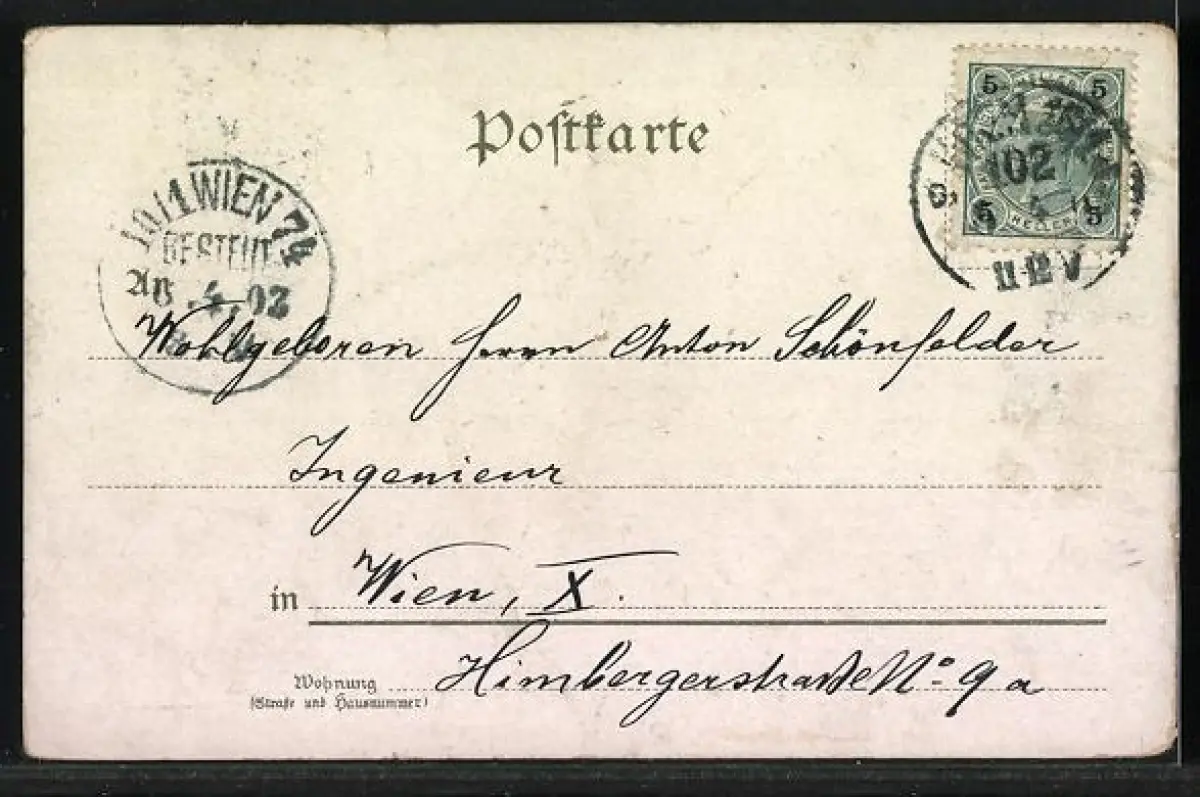 Postkarte
5 5
102
5 5
HELLER
11-12 V
10/1 WIEN 74
BESTELLT
.4.02
Wohlgeboren Herrn Anton Schönfelder
Ingenieur
in Wien, X.
Wohnung Himbergerstraße No. 9a
(Straße und Hausnummer)